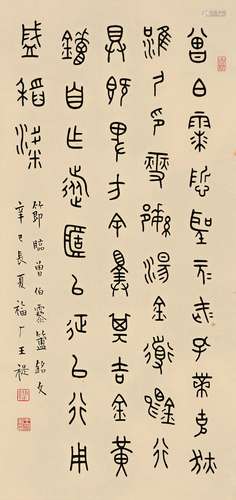 曾白霥悊聖元武孔黹克狄
淮尸印燮繁湯金道錫行
具既卑方余睪其吉金黃
自乍旅㠯征㠯行用
盛稻粱
節臨曾伯霥簠銘文
辛巳長夏福厂王禔